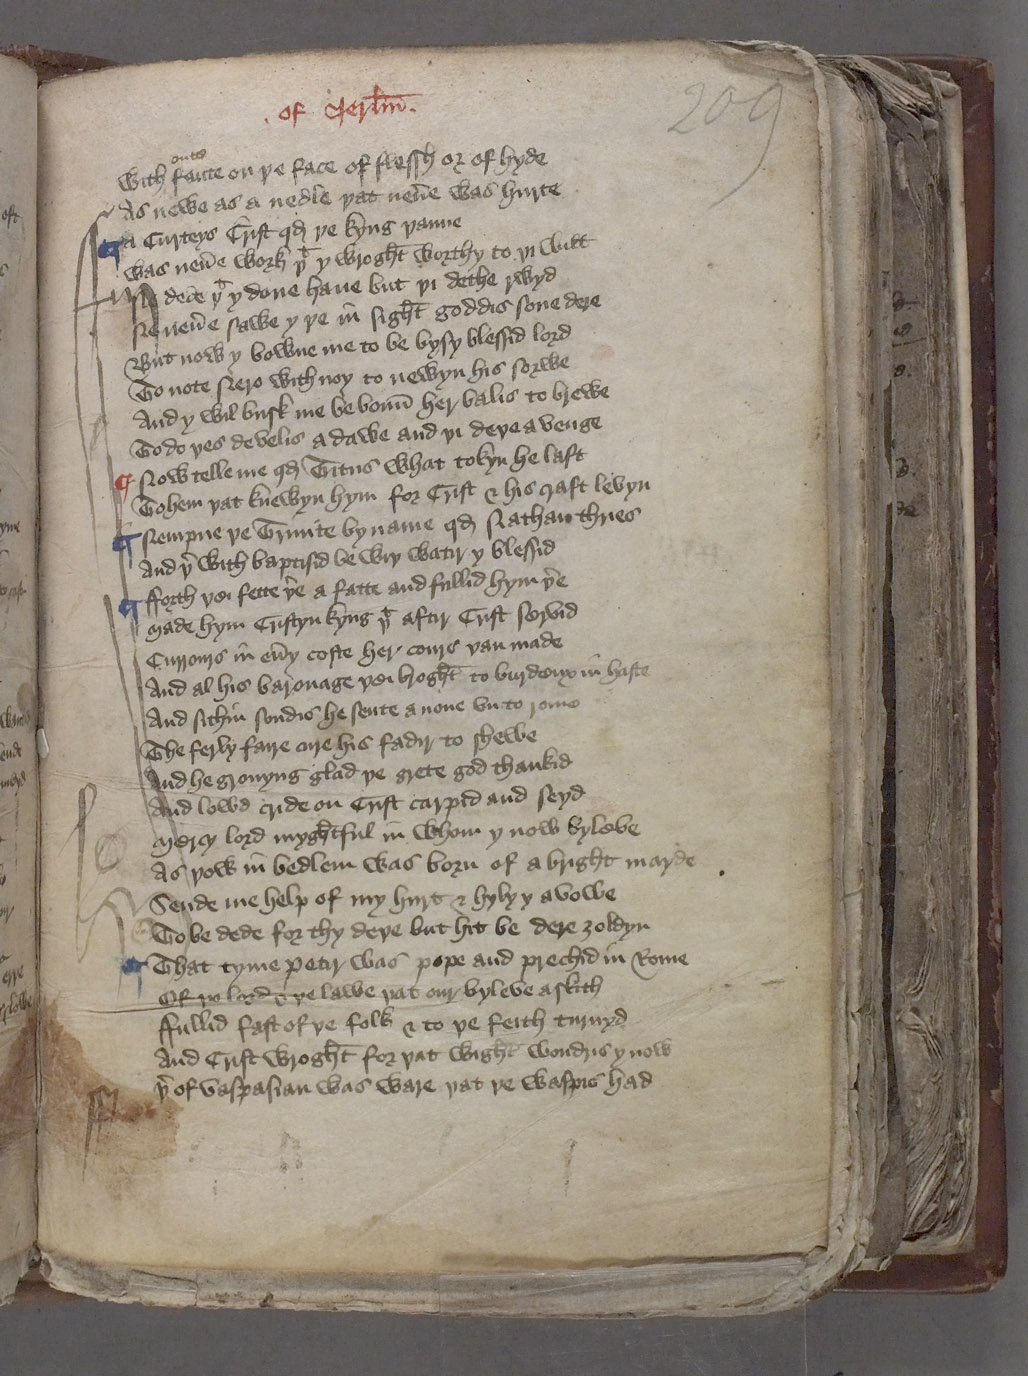 . of Merlin̄ .
209
With outo faute on þe face of flessh or of hyde
As newe as a nedle þat neu̅e was hurte
A Curteys Crist qd̵ þe kyng þanne
Was neu̅e work þᵗ y wroght worthy to þi
deae þᵗ y done haue but þi dethe
Ne neu̅e sawe y þe in̄ sight goddis sone dere
But now y bowne me to be bysy blessid lord
To note Nero with noy to newyn his sorwe
And y wil busk me be boun̄ her balis to brewe
To do þes develis a dawe and þi deþe a venge
Now telle me qd̵ Titus what tokyn he laft
To hem þat knewyn hym for Crist & his craft levyn
Nempne þe Trinite by name qd̵ Nathan thries
And þ̄ with baptisid be wiþ watir y blessid
fforth þei fette þ̄e a fatte and fullid hym þ̄e
Made hym Cristyn kyng þᵗ aftir Crist servid
Currours in̄ eu̅y coste her cours þan made
And al his baronage þei broght to burdeux in̄ haste
And sithin̄ sondis he sente a none vn to rome
The ferly faire cure his fadir to shewe
And he gronyng glad þe grete god thankid
And lowd cride on Crist carpid and seyd
Mercy lord myghtful in̄ whom y now byleve
As þow in̄ bedlem was born of a bright mayde
Sende me help of my hurt & hyly y avowe
To be dede for thy deþe but hit be dere ȝoldyn
That tyme Petir was pope and prechid in̄ Rome
Of þe lord & þe lawe þat our byleve askith
ffullid fast of þe folk & to þe feith turnyd
And Crist wroght for þat wight wondris ynow
þ̄ of Vaspasian was ware þat þe waspis had